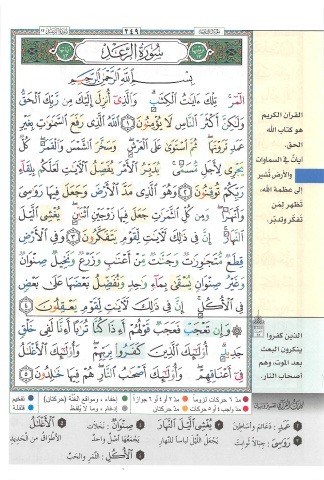 سورة الرعد ١٣
٢٤٩
سُورَةُ الرَّعْدِ
بِسْمِ اللَّهِ الرَّحْمَٰنِ الرَّحِيمِ
الٓمٓر ۚ تِلْكَ ءَايَٰتُ ٱلْكِتَٰبِ ۗ وَٱلَّذِىٓ أُنزِلَ إِلَيْكَ مِن رَّبِّكَ ٱلْحَقُّ
وَلَٰكِنَّ أَكْثَرَ ٱلنَّاسِ لَا يُؤْمِنُونَ ١ ٱللَّهُ ٱلَّذِى رَفَعَ ٱلسَّمَٰوَٰتِ بِغَيْرِ
عَمَدٍ تَرَوْنَهَا ۖ ثُمَّ ٱسْتَوَىٰ عَلَى ٱلْعَرْشِ ۖ وَسَخَّرَ ٱلشَّمْسَ وَٱلْقَمَرَ ۖ كُلٌّ
يَجْرِى لِأَجَلٍ مُّسَمًّى ۚ يُدَبِّرُ ٱلْأَمْرَ يُفَصِّلُ ٱلْءَايَٰتِ لَعَلَّكُم بِلِقَآءِ
رَبِّكُمْ تُوقِنُونَ ٢ وَهُوَ ٱلَّذِى مَدَّ ٱلْأَرْضَ وَجَعَلَ فِيهَا رَوَٰسِىَ
وَأَنْهَٰرًا ۖ وَمِن كُلِّ ٱلثَّمَرَٰتِ جَعَلَ فِيهَا زَوْجَيْنِ ٱثْنَيْنِ ۖ يُغْشِى ٱلَّيْلَ
ٱلنَّهَارَ ۚ إِنَّ فِى ذَٰلِكَ لَءَايَٰتٍ لِّقَوْمٍ يَتَفَكَّرُونَ ٣ وَفِى ٱلْأَرْضِ
قِطَعٌ مُّتَجَٰوِرَٰتٌ وَجَنَّٰتٌ مِّنْ أَعْنَٰبٍ وَزَرْعٌ وَنَخِيلٌ صِنْوَانٌ
وَغَيْرُ صِنْوَانٍ يُسْقَىٰ بِمَآءٍ وَٰحِدٍ وَنُفَضِّلُ بَعْضَهَا عَلَىٰ بَعْضٍ
فِى ٱلْأُكُلِ ۚ إِنَّ فِى ذَٰلِكَ لَءَايَٰتٍ لِّقَوْمٍ يَعْقِلُونَ ٤
وَإِن تَعْجَبْ فَعَجَبٌ قَوْلُهُمْ أَءِذَا كُنَّا تُرَٰبًا أَءِنَّا لَفِى خَلْقٍ
جَدِيدٍ ۗ أُو۟لَٰٓئِكَ ٱلَّذِينَ كَفَرُوا۟ بِرَبِّهِمْ ۖ وَأُو۟لَٰٓئِكَ ٱلْأَغْلَٰلُ
فِىٓ أَعْنَاقِهِمْ ۖ وَأُو۟لَٰٓئِكَ أَصْحَٰبُ ٱلنَّارِ ۖ هُمْ فِيهَا خَٰلِدُونَ ٥
القرآن الكريم
هو كتاب الله
الحق.
آيات في السماوات
والأرض تُشير
إلى عظمة الله،
تظهر لِمَن
تفكّر وتدبّر.
الذين كفروا
ينكرون البعث
بعد الموت، وهم
أصحاب النار.
مدّ ٦ حركات لزوماً
مدّ ٢ أو ٤ أو ٦ جوازاً
إخفاء، ومواقع الغُنَّة (حركتان)
تفخيم
مدّ واجب ٤ أو ٥ حركات
مدّ حركتان
إدغام، وما لا يُلفظ
قلقلة
عَمَدٍ: دَعَائِمَ وأَسَاطِينَ
رَوَاسِيَ: جِبَالاً ثَوَابِتَ
يُغْشِي اللَّيْلَ النَّهَارَ
يَجْعَلُ اللَّيْلَ لِبَاساً لِلنَّهَارِ
صِنْوَانٌ: نَخَلَاتٌ
يَجْمَعُهَا أَصْلٌ وَاحِدٌ
الْأُكُلِ: الثَّمَرِ وَالْحَبِّ
الْأَغْلَالُ
الأَطْوَاقُ مِنَ الْحَدِيدِ